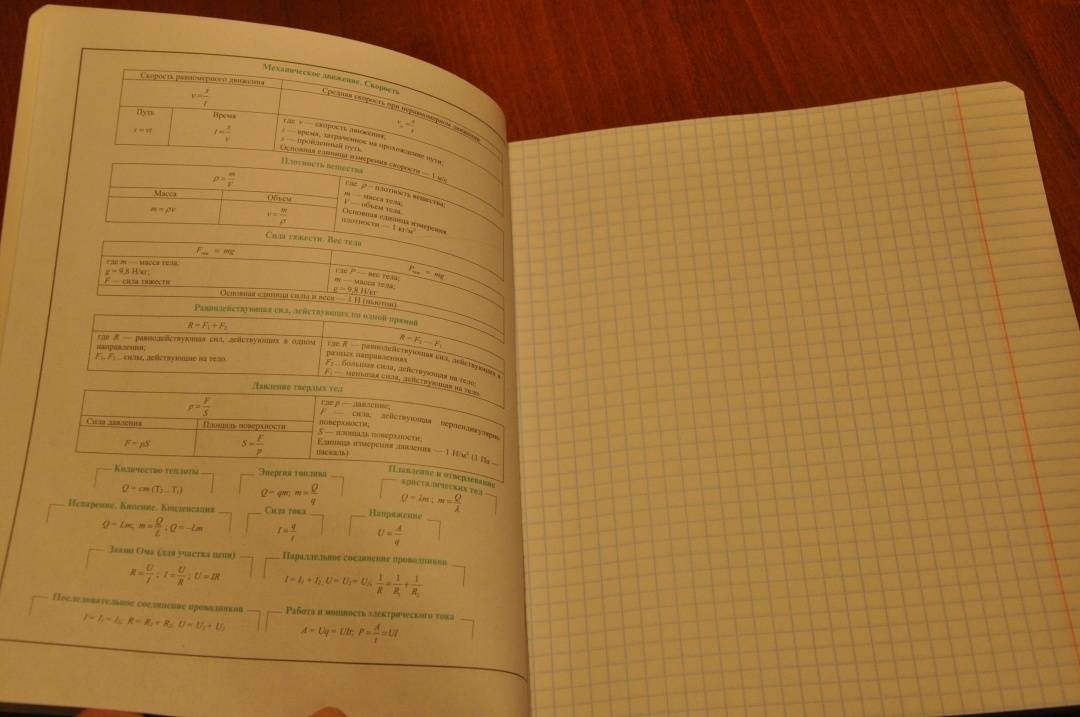 Механическое движение. Скорость
Скорость равномерного движения
v = s/t
Средняя скорость при неравномерном движении
v = s/t
Путь
s = vt
Время
t = s/v
где v — скорость движения;
t — время, затраченное на прохождение пути;
s — пройденный путь.
Основная единица измерения скорости — 1 м/с
Плотность вещества
ρ = m/V
Масса
m = ρv
Объем
v = m/ρ
где ρ – плотность вещества;
m — масса тела;
V — объем тела.
Основная единица измерения
плотности — 1 кг/м³
Сила тяжести. Вес тела
Fтяж = mg
где m — масса тела;
g = 9,8 Н/кг;
F — сила тяжести
= mg
где P — вес тела;
m — масса тела;
g = 9,8 Н/кг
Основная единица силы и веса — 1 Н (ньютон)
Равнодействующая сил, действующих по одной прямой
R = F₁ + F₂
где R — равнодействующая сил, действующих в одном
направлении;
F₁, F₂ .. силы, действующие на тело.
R = F₂ — F₁
где R — равнодействующая сил, действующих в
разных направлениях
F₂ .. большая сила, действующая на тело;
F₁ — меньшая сила, действующая на тело.
Давление твердых тел
p = F/S
Сила давления
F = pS
Площадь поверхности
S = F/p
где p — давление;
F — сила, действующая перпендикулярно
поверхности;
S — площадь поверхности;
Единица измерения давления — 1 Н/м² (1 Па —
паскаль)
Количество теплоты
Q = cm (T₂ .. T₁)
Энергия топлива
Q = qm; m = Q/q
Плавление и отвердевание
кристалических тел
Q = λm ; m = Q/λ
Испарение. Кипение. Конденсация
Q = Lm; m = Q/L ; Q = –Lm
Сила тока
I = q/t
Напряжение
U = A/q
Закон Ома (для участка цепи)
R = U/I ; I = U/R ; U = IR
Параллельное соединение проводников
I = I₁ + I₂; U = U₁ = U₂; 1/R = 1/R₁ + 1/R₂
Последовательное соединение проводников
I = I₁ = I₂; R = R₁ + R₂; U = U₁ + U₂
Работа и мощность электрического тока
A = Uq = UIt; P = A/t = UI